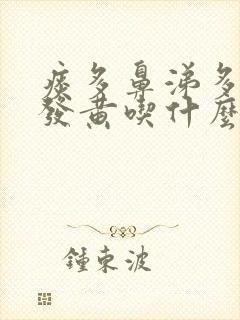 痰多鼻涕多
發黃喫什麼
鍾東波